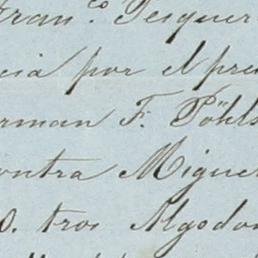 Fran.co Pesquer
cia por el pre
erman F. Pöhls
ontra Miguel
o. tros Algodon